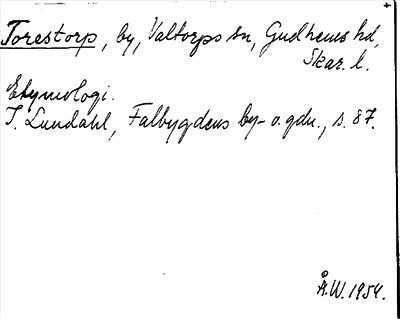 Torestorp, by, Valtorps sn, Gudhems hd,
Skar. l.
Etymologi.
I. Lundahl, Falbygdens by- o. gdn., s. 87.
Å.W. 1954.